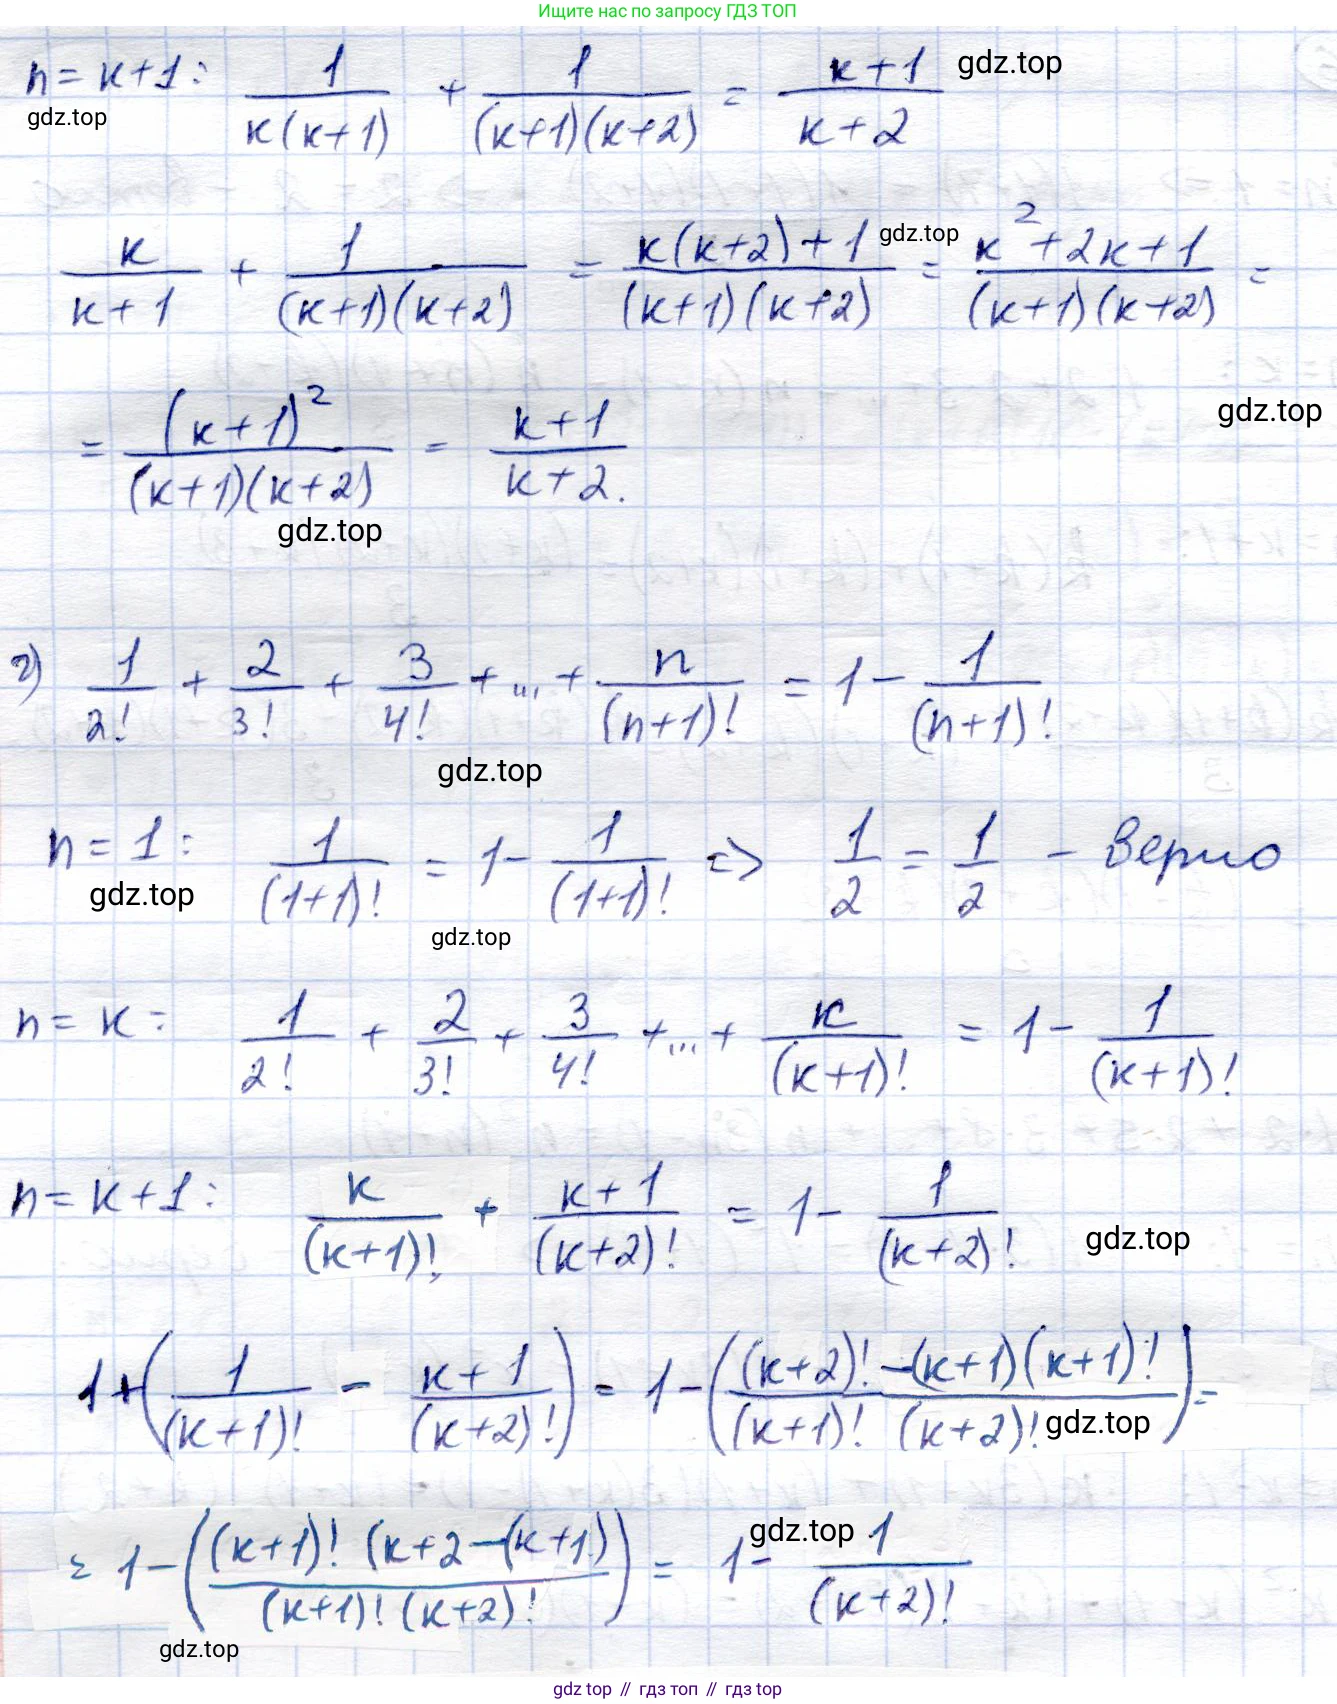 Ищите нас по запросу ГДЗ ТОП
n = к+1: 1/(к(к+1)) + 1/((к+1)(к+2)) = (к+1)/(к+2)
gdz.top
gdz.top
к/(к+1) + 1/((к+1)(к+2)) = (к(к+2)+1)/((к+1)(к+2)) = (к²+2к+1)/((к+1)(к+2)) =
gdz.top
= (к+1)²/((к+1)(к+2)) = (к+1)/(к+2).
gdz.top
gdz.top
г) 1/2! + 2/3! + 3/4! + ... + n/(n+1)! = 1 - 1/(n+1)!
gdz.top
n = 1: 1/(1+1)! = 1 - 1/(1+1)! => 1/2 = 1/2 - верно
gdz.top
gdz.top
n = к: 1/2! + 2/3! + 3/4! + ... + к/(к+1)! = 1 - 1/(к+1)!
n = к+1: к/(к+1)! + (к+1)/(к+2)! = 1 - 1/(к+2)!
gdz.top
1+(1/(к+1)! - (к+1)/(к+2)!) = 1-(((к+2)! -(к+1)(к+1)!)/((к+1)! (к+2)!)) =
gdz.top
= 1-(((к+1)! (к+2-(к+1))/((к+1)! (к+2)!)) = 1 - 1/(к+2)!
gdz.top
gdz.top
gdz top // гдз топ // гдз top